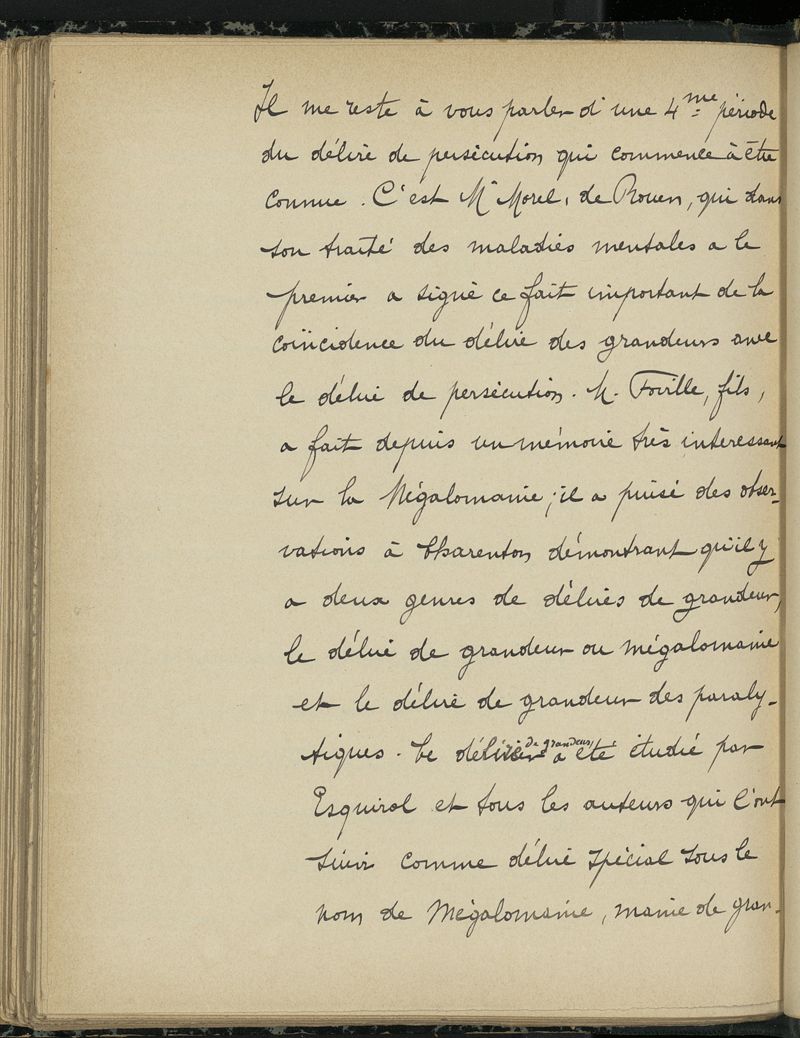 Il me reste à vous parler d'une 4me période
du délire de persécution qui commence à être
connue. C'est Mr Morel, de Rouen, qui dans
son traité des maladies mentales a le
premier a signé ce fait important de la
coïncidence du délire des grandeurs avec
le délire de persécution. M. Foville, fils,
a fait depuis un mémoire très interessant
sur la Mégalomanie; il a puisé des obser-
vations à Charenton démontrant qu'il y
a deux genres de délires de grandeur,
le délire de grandeur ou mégalomanie
et le délire de grandeur des paraly-
tiques. Le délire de grandeur a été étudié par
Esquirol et tous les auteurs qui l'ont
suivi comme délire spécial sous le
nom de Mégalomanie, manie de gran-